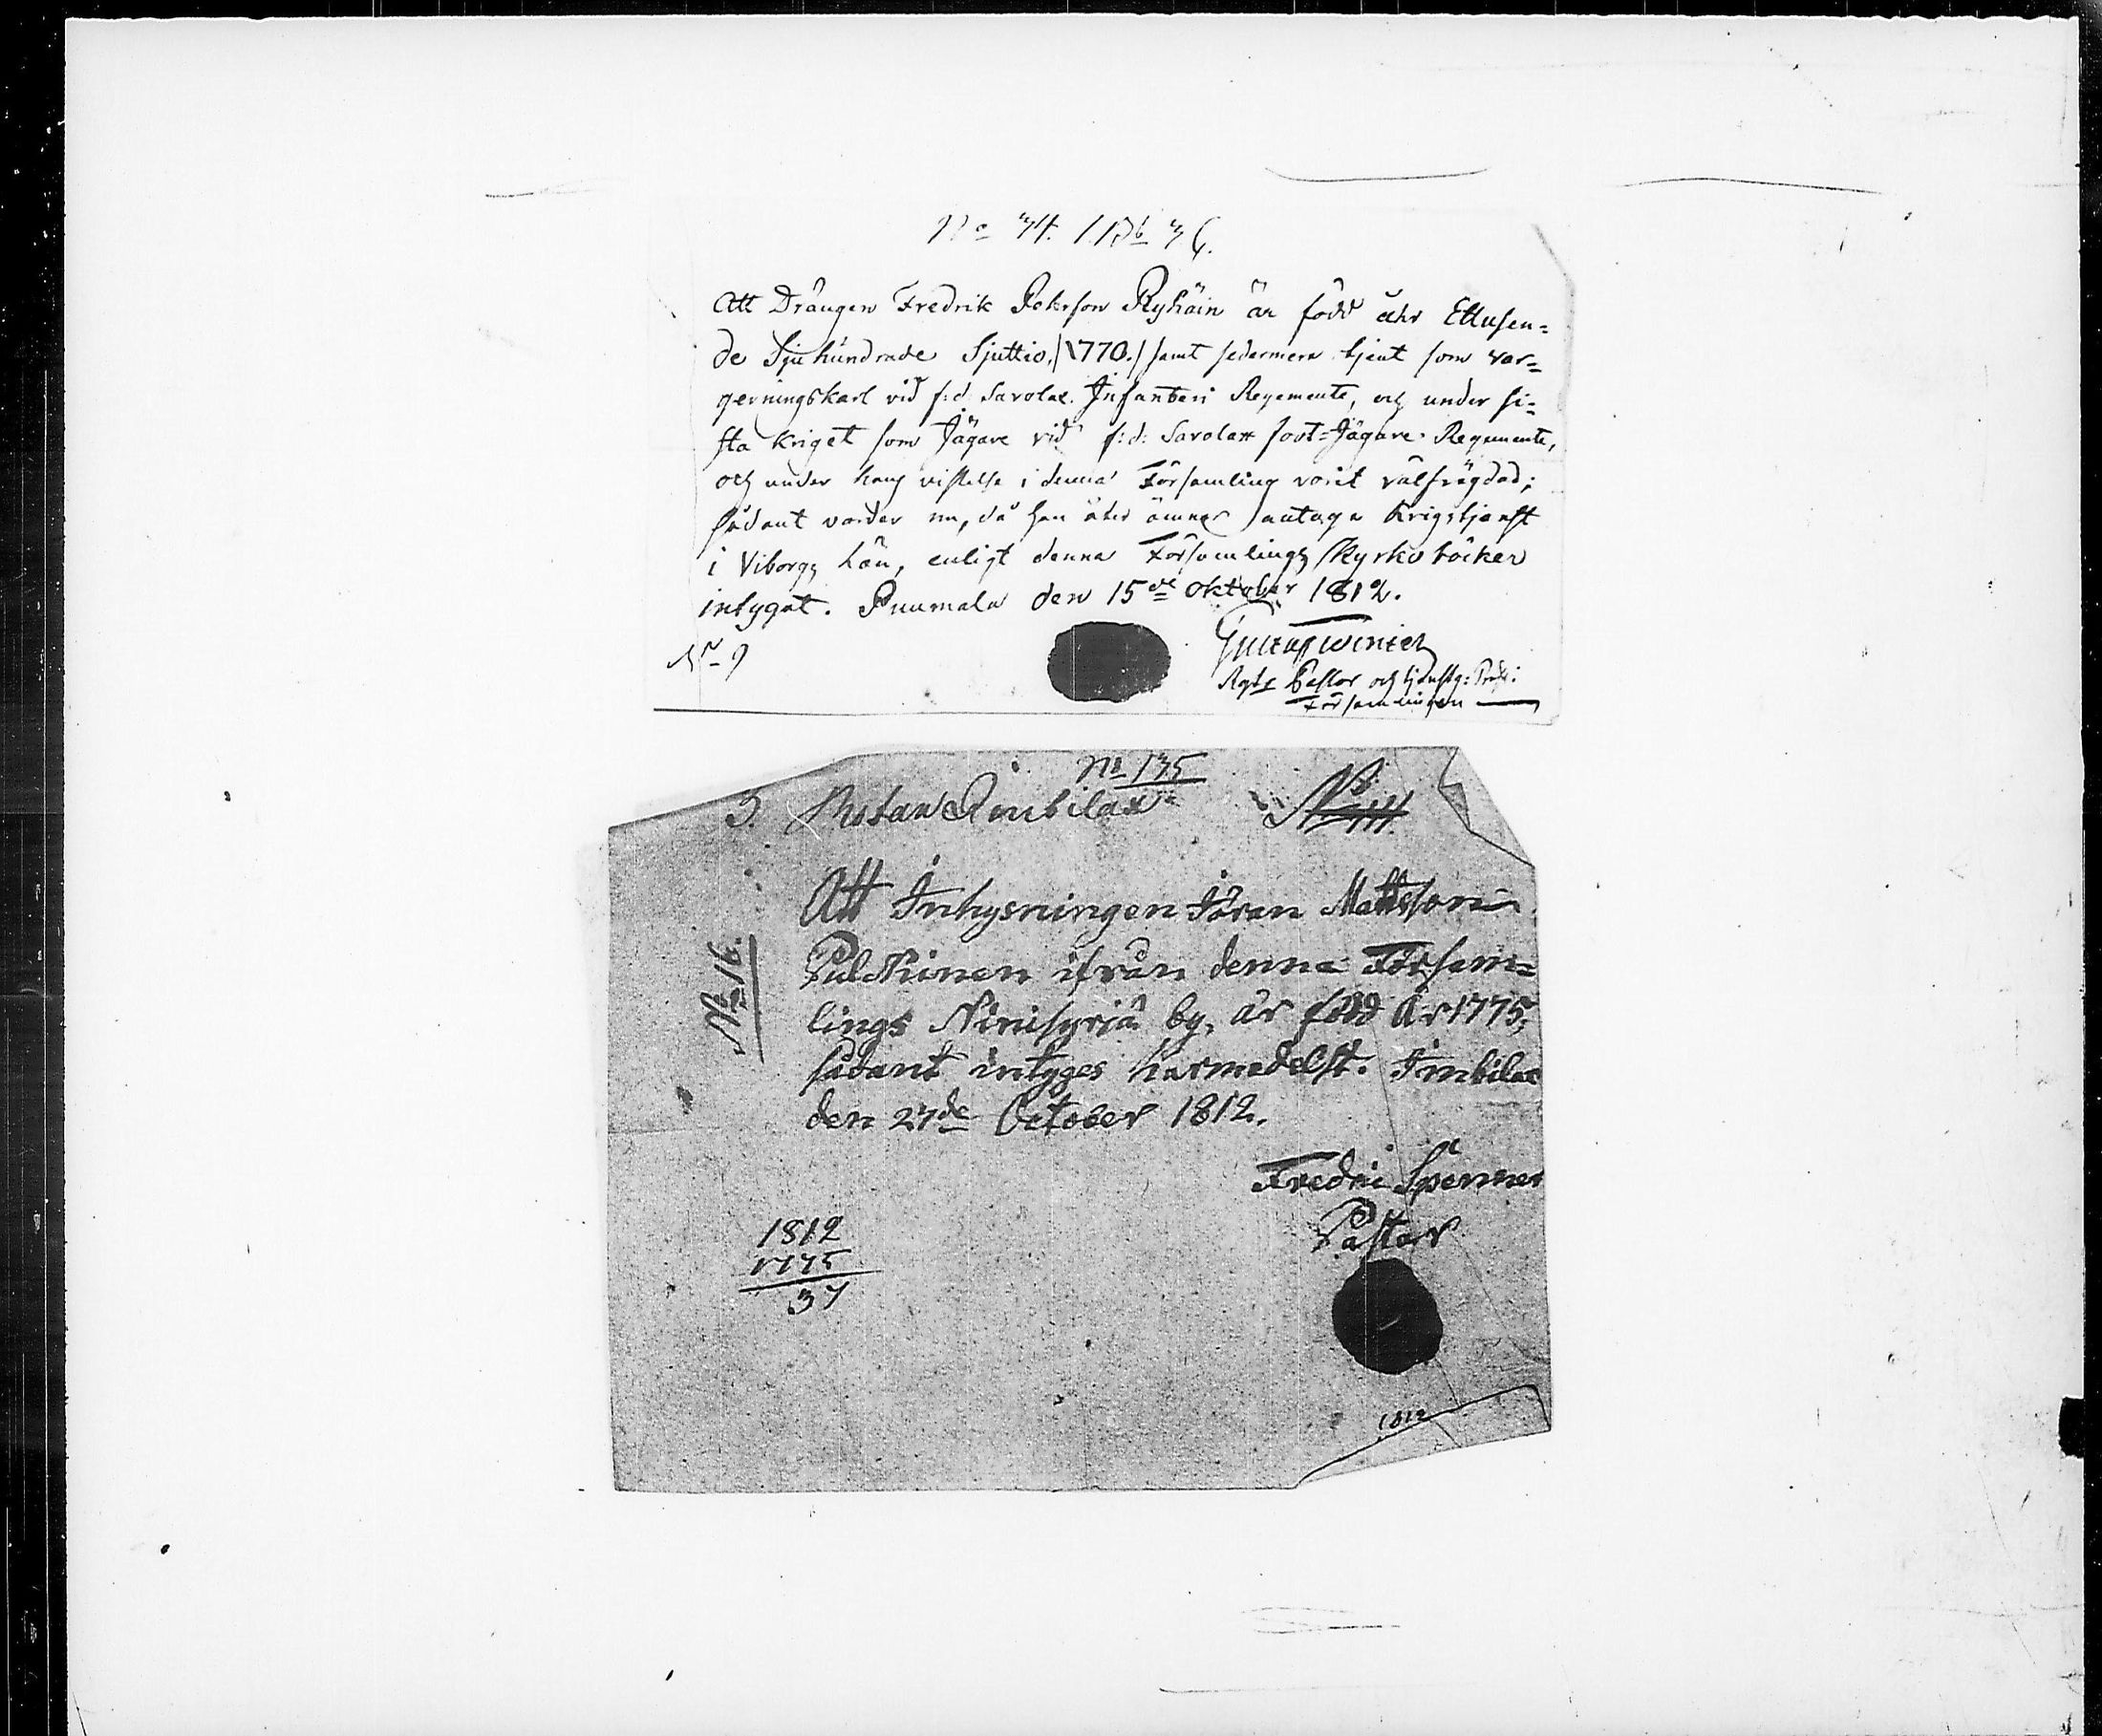 No 34.
Att Drängen Fredrik Pehrson Ryhäin är född åhr Ettusen=
de Sjuhundrade Sjuttio, /1770./ samt sedermera tjent som var=
geringskarl vid f:d Savolax Infanteri Regemente, och under si=
sta kriget som Jägare vid f:d: Savolax foot=Jägare Regemente,
och under hans vistelse i denna Församling varit välfrägdad;
sådant varder nu, då han åter ämnar antaga Krigstjenst
i Viborgs Län, enligt denna Församlings Kyrkoböcker
intygat. Puumala den 15de Oktober 1812.
Gustaf Winter
Regts Pastor och tjenstg: Pred: i
Församlingen
No 9
No 135
3. Imbilax
No 111
Att Inhysningen Jöran Mattsson
Pulkinen ifrån denna Försam=
lings Niinisyrjä by, är född År 1775,
sådant intyges härmedelst. Imbilax
den 27de October 1812.
No 16.
Fredric Spenner
Pastor
1812
1775
37
1812